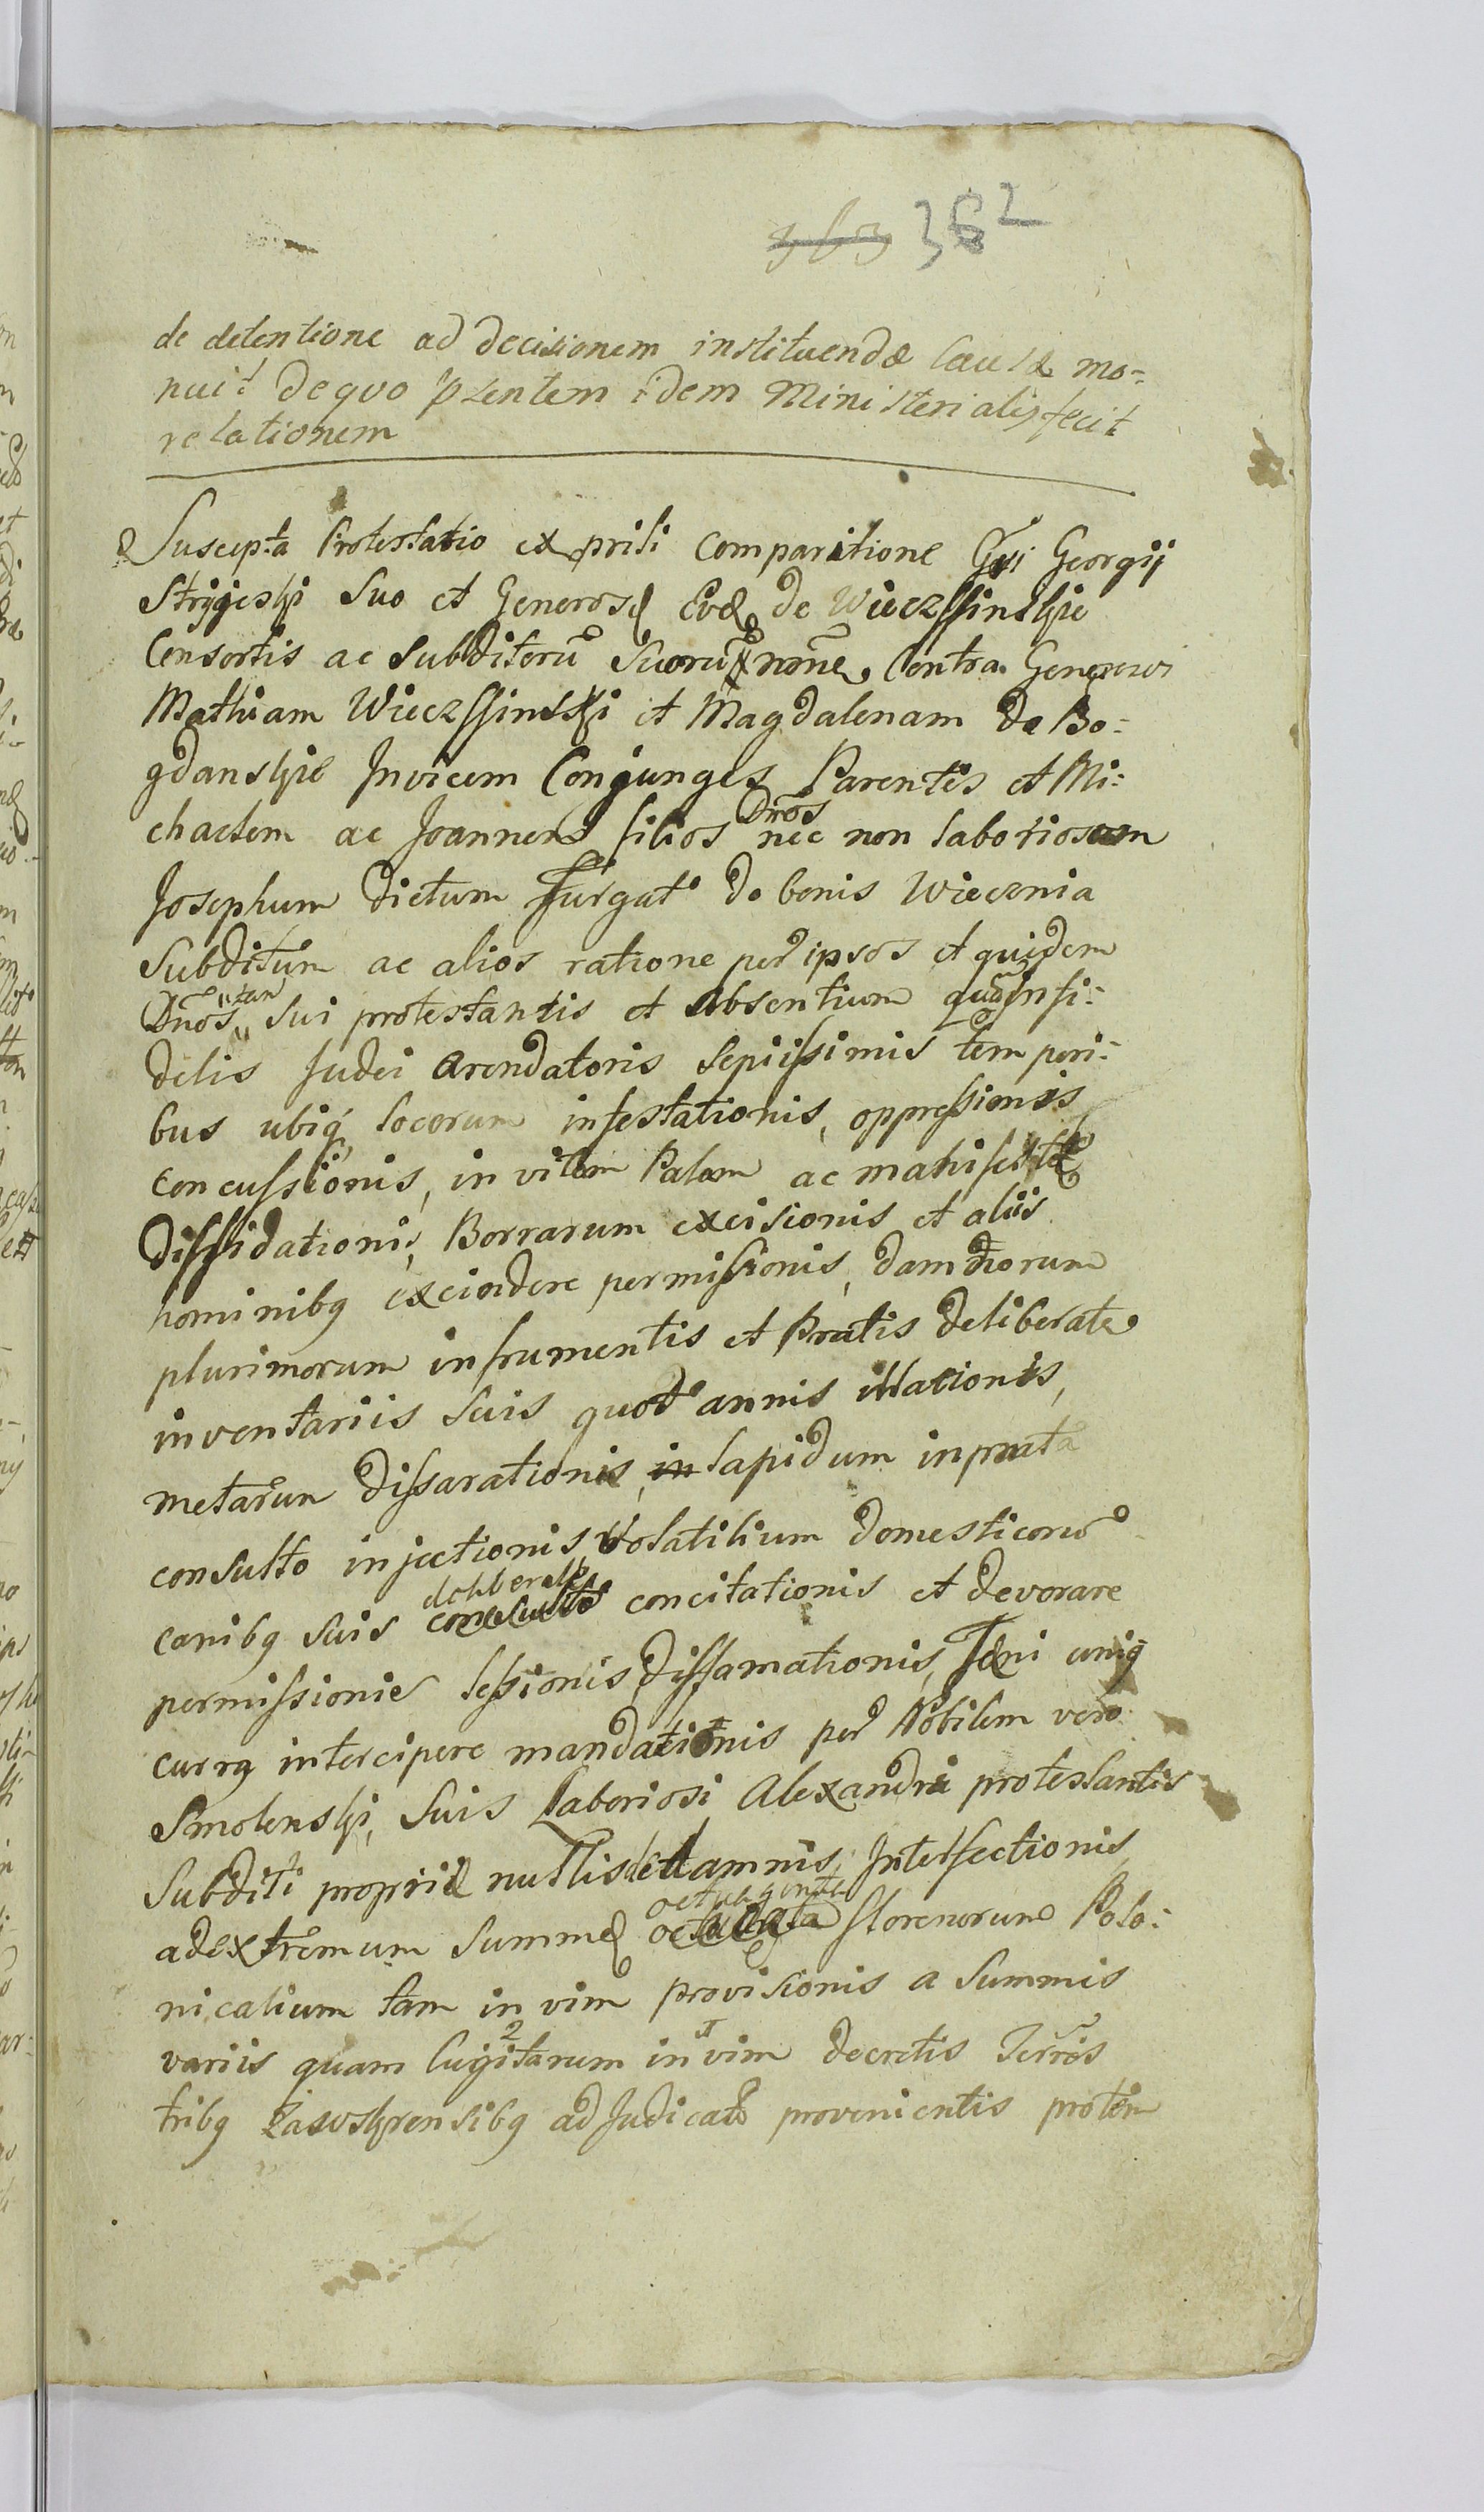 362
de detentione ad decisionem instituendæ Causæ mo-
nuit de quo przentem idem Ministerialis fecit
relationem
Suscepta Protestatio ex prsti Comparitione Gsi Georgij
Stryjeski Suo et Generosæ Evæ de Wieczffinskie
Consortis ac Subditorū Suorū noīne Contra Generosos
Mathiam Wieczffinski et Magdalenam de Bo-
gdanskie Invicem Conjunges Parentes et Mi-
chaelem ac Joannem filios Dnōs nec non laboriosum
Josephum dictum Furgat de bonis Wiecznia
Subditum ac alios ratione per ipsos et quidem
Dnōs tam Sui protestantis et Absentium quā Infi-
delis Judei Arendatoris Sepiissimis tempori-
bus ubiq locorum infestationis, oppressionis
concussionis, in vitam Palam ac manifeste
Diffidationis, Borrarum excisionis et aliis
hominibq excindere permissionis, damnorum
plurimorum in frumentis et Pratis deliberate
inventariis Suis quot annis illationis,
metarum Dissarationis, in lapidum in prata
consulto injectionis, Volatilium domesticorū
canibq suis deliberate concitationis et devorare
permissionis lessionis, diffamationis, Fæni uniq
currq intercipere mandationis per Nobilem vero
Smolenski, Suis Laboriosi Alexandri protestantis
Subditi propriæ nullis de damnis, Interfectionis
ad extremum Summæ octuaginta florenorum Polo-
nicalium tam in vim provisionis a Summis
variis quam lugitarum in vim decretis Terrōs
tribq Zasvskrensibq adJudicatæ provenientis protūm